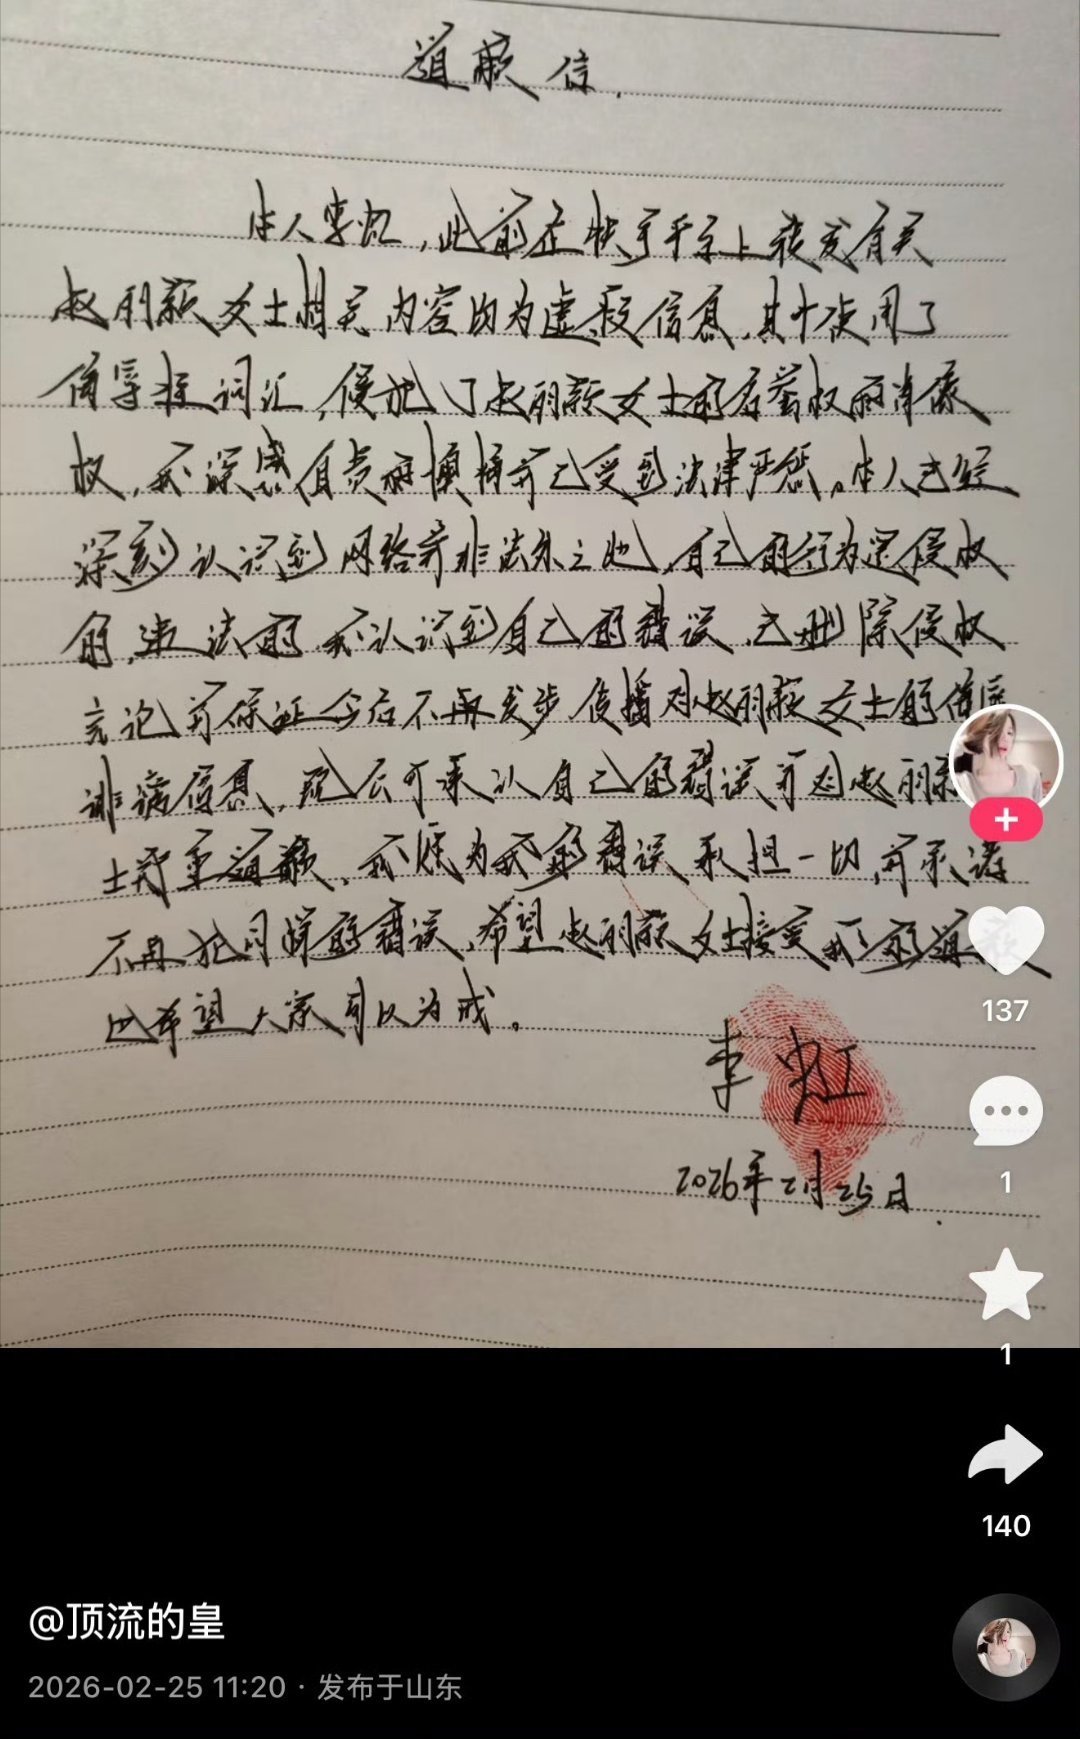 道歉信.
本人李虹,此前在快手平台上转发有关
赵丽颖女士相关内容均为虚假信息,其中使用了
侮辱性词汇,侵犯了赵丽颖女士的名誉权和肖像
权,我深感自责和懊悔并已受到法律严惩。本人已经
深刻认识到网络并非法外之地,自己的行为是侵权
的,违法的,我认识到自己的错误,已删除侵权
言论并保证今后不再发步传播对赵丽颖女士的侮辱
诽谤信息,现公开承认自己的错误并对赵丽
士郑重道歉,我愿为我的错误承担一切,并承诺
不再犯同样的错误,希望赵丽颖女士接受我的道歉
也希望大家引以为戒。
李虹
2026年2月25日.
137
1
1
140
@顶流的皇
2026-02-25 11:20 · 发布于山东